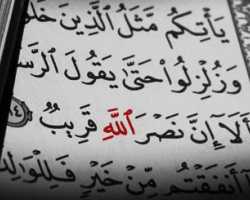 يَأْتِكُم مَّثَلُ ٱلَّذِينَ خَلَ
وَزُلْزِلُوا۟ حَتَّىٰ يَقُولَ ٱلرَّسُ
أَلَآ إِنَّ نَصْرَ ٱللَّهِ قَرِيبٌ
مَآ أَنفَقْتُم مِّنْ خَيْرٍ فَلِلْوَٰلِدَ